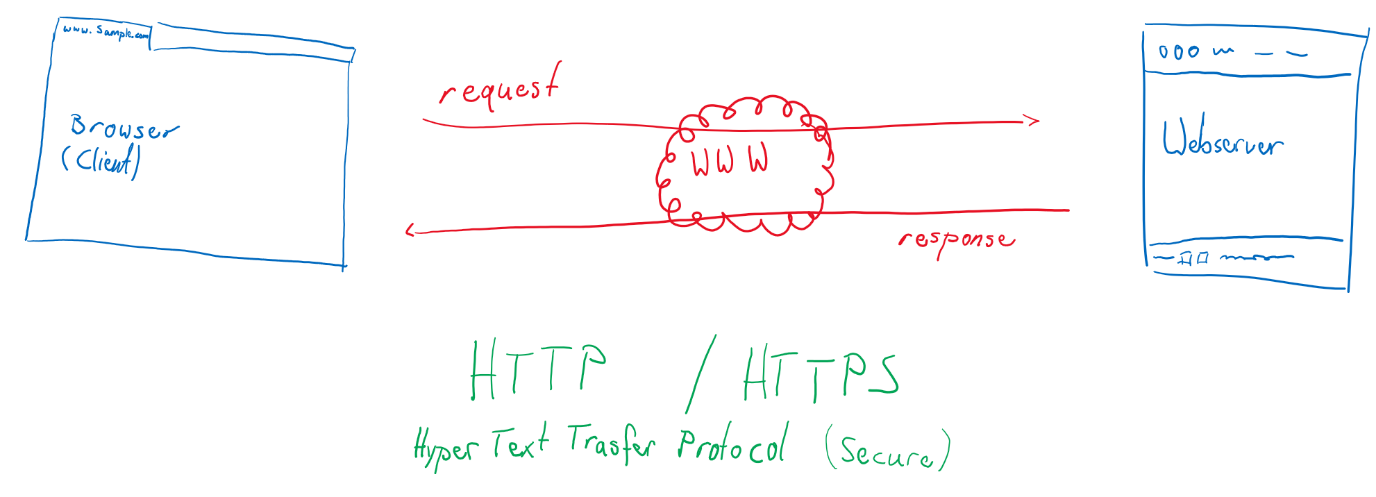 www.Sample.com
Browser
(Client)
request
WWW
response
Webserver
HTTP / HTTPS
Hyper Text Trasfer Protocol (Secure)